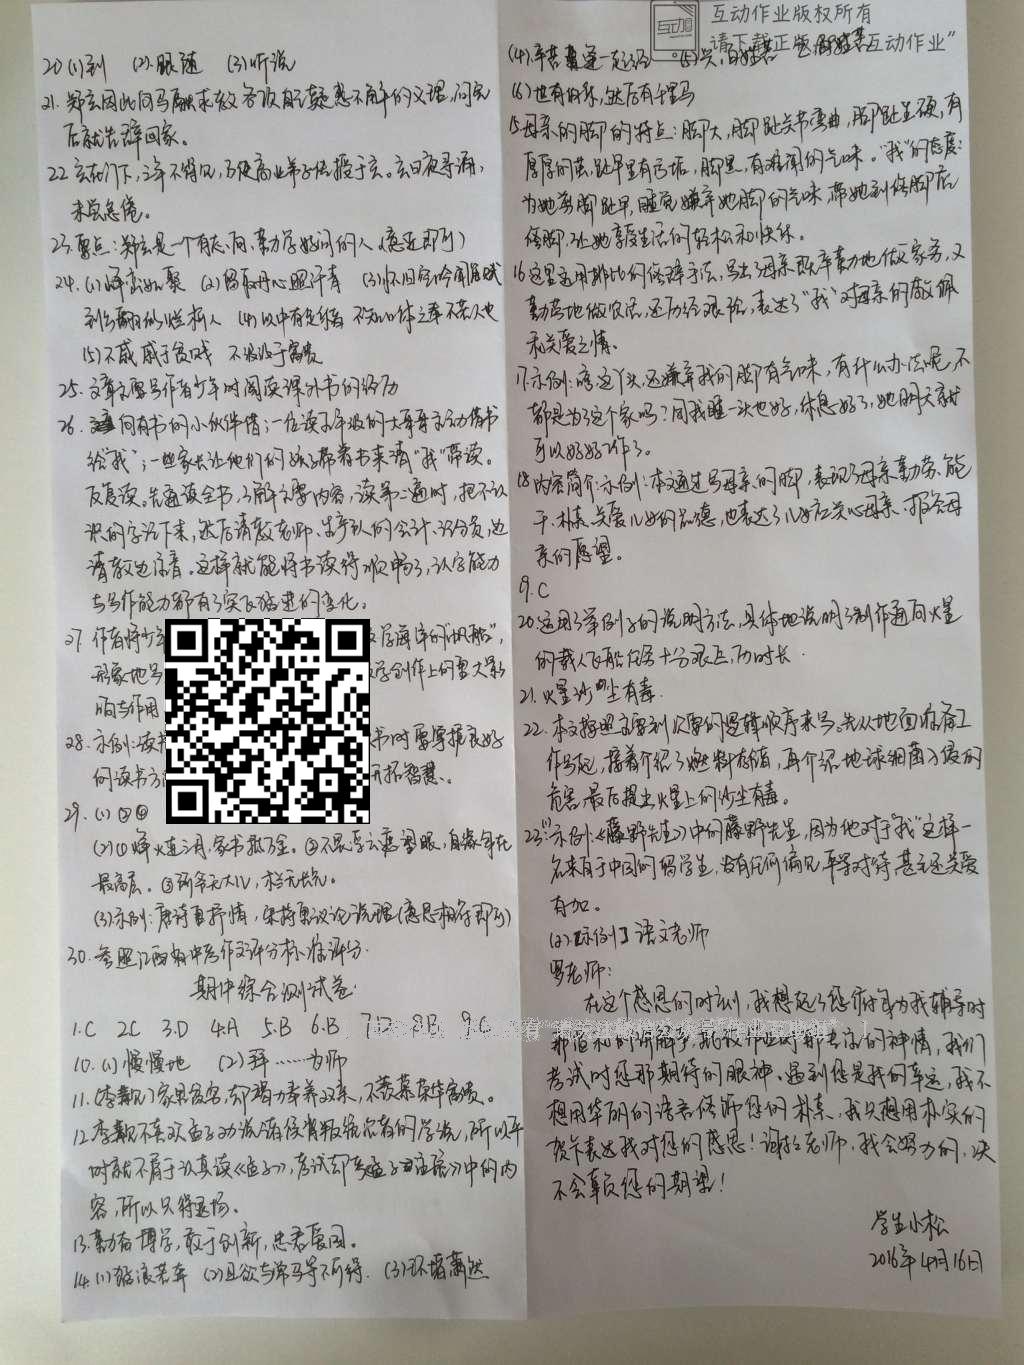 互动作业版权所有
请下载正版"互动作业"
20.(1)到 (2)跟随 (3)听说
21.郑玄因此向马融求教各项自己疑惑不解的义理,问完
后就告辞回家。
22.玄在门下,三年不得见,乃使高业弟子传授于玄。玄日夜寻诵,
未尝怠倦。
23.要点:郑玄是一个有志向、勤学好问的人(意近即可)
24.(1)峰峦如聚 (2)留取丹心照汗青 (3)怀旧空吟闻笛赋
到乡翻似烂柯人 (4)以中有足乐者 不知口体之奉不若人也
(5)不戚戚于贫贱 不汲汲于富贵
25.文章主要写作者少年时阅读课外书的经历
26.向有书的小伙伴借;一位读五年级的大哥哥主动借书
给"我";一些家长让他们的孩子带着书来请"我"带读。
反复读。先通读全书,了解主要内容,读第二遍时,把不认
识的字记下来,然后请教老师、生产队的会计、记分员,也
请教过 。这样就能将书读得顺畅了,认字能力
与写作能力都有了突飞猛进的变化。
27.作者将少 文学海洋的"帆船",
形象地写 文学创作上的重大影
响与作用
28.示例:读 书时要掌握良好
的读书方 开拓智慧。
29.(1)②④
(2)①烽火连三月,家书抵万金。②不畏浮云遮望眼,自缘身在
最高层。③
(3)示例:唐诗重抒情,宋诗重议论说理(意思相符即可)
30.参照江西省中考作文评分标准评分.
期中综合测试卷
1.C 2.C 3.D 4.A 5.B 6.B 7.B 8.B 9.C
10.(1)慢慢地 (2)拜……为师
11.(李觏)家里贫穷,却竭力奉养双亲,不羡慕荣华富贵。
12.李觏不喜欢孟子劝说诸侯背叛统治者的学说,所以平
时就不屑于认真读《孟子》,考试却考孟子注疏》中的内
容,所以只得退场。
13.勤奋博学,敢于创新,忠君爱国。
14.(1)骇浪若奔 (2)且欲与常马等不可得 (3)环堵萧然
(4)辛苦遭逢起一经 (5)兴,百姓苦 亡,百姓苦
(6)世有伯乐,然后有千里马
15.母亲的脚的特点:脚大,脚趾关节弯曲,脚趾坚硬,有
厚厚的茧,趾甲里有污垢,脚黑,有难闻的气味。"我"的态度:
为她剪脚趾甲,睡觉嫌弃她脚的气味,带她到修脚店
修脚,让她享受生活的轻松和快乐。
16.这里运用排比的修辞手法,写出了母亲既辛勤地做家务,又
勤劳地做农活,还历经艰险,表达了"我"对母亲的敬佩
和关爱之情。
17.示例:唉,这丫头,还嫌弃我的脚有气味,有什么办法呢,不
都是为了这个家吗?同我睡一头也好,休息好了,她明天就
可以好好工作了。
18.内容简介:示例:本文通过写母亲的脚,表现了母亲勤劳、能
干、朴素、关爱儿女的品德,也表达了儿女应关心母亲、报答母
亲的愿望。
19.C
20.运用了举例子的说明方法,具体地说明了制作通向火星
的载人飞船任务十分艰巨,历时长.
21.火星沙尘有毒.
22.本文按照主要到次要的逻辑顺序来写。先从地面准备工
作写起,接着介绍了燃料存储,再介绍地球细菌入侵的
危害,最后提出火星上的沙尘有毒。
23.(1)示例:《藤野先生》中的藤野先生,因为他对于"我"这样一
名来自于中国的留学生,没有任何偏见,平等对待,甚至还关爱
有加。
(2)[示例]语文老师
罗老师:
在这个感恩的时刻,我想起了您伴为我辅导时
那温和的讲解,批改作业时那专注的神情,我们
考试时您那期待的眼神。遇到您是我的幸运,我不
想用华丽的语言修饰您的朴素,我只想用朴实的
贺卡表达我对您的感恩!谢谢老师,我会努力的,决
不会辜负您的期望!
学生小松
2016年4月16日